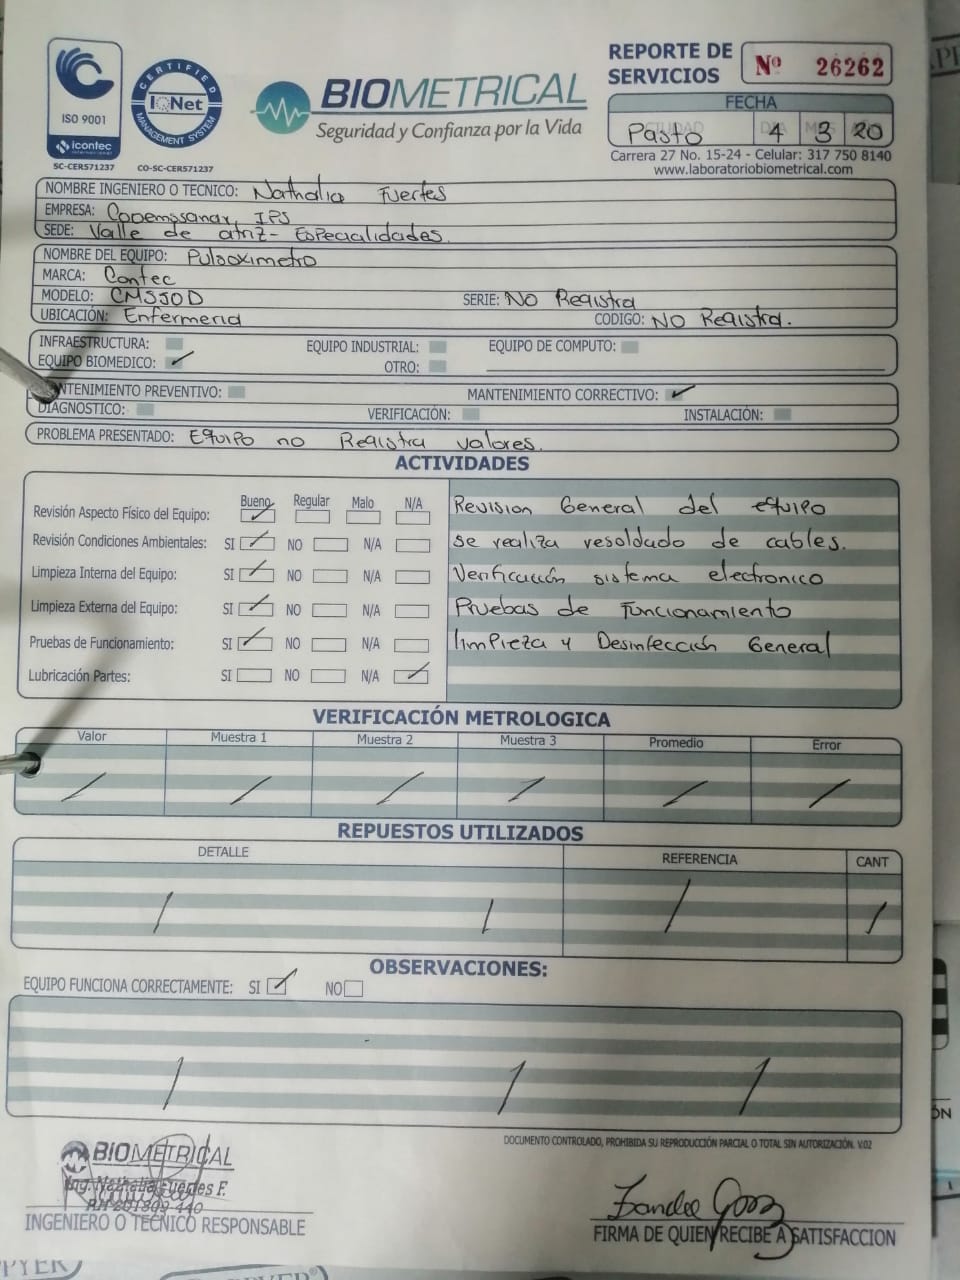 REPORTE DE
SERVICIOS
Nº 26262
CERTIFIED
IQNet
MANAGEMENT SYSTEM
ISO 9001
icontec
internacional
SC-CER571237
CO-SC-CER571237
BIOMETRICAL
Seguridad y Confianza por la Vida
FECHA
CIUDAD DIA MES AÑO
Pasto 4 3 20
Carrera 27 No. 15-24 - Celular: 317 750 8140
www.laboratoriobiometrical.com
NOMBRE INGENIERO O TECNICO: Nathalia Fuertes
EMPRESA: Cooemssanar IPS
SEDE: Valle de atriz - Especialidades.
NOMBRE DEL EQUIPO: Pulsoximetro
MARCA: Contec
MODELO: CMS50D SERIE: No Registra
UBICACIÓN: Enfermeria CODIGO: No Registra.
INFRAESTRUCTURA: EQUIPO INDUSTRIAL: EQUIPO DE COMPUTO:
EQUIPO BIOMEDICO: ✓ OTRO:
NTENIMIENTO PREVENTIVO: MANTENIMIENTO CORRECTIVO: ✓
DIAGNOSTICO: VERIFICACIÓN: INSTALACIÓN:
PROBLEMA PRESENTADO: Equipo no Registra valores.
ACTIVIDADES
Bueno Regular Malo N/A
Revisión Aspecto Físico del Equipo: ✓
Revisión Condiciones Ambientales: SI ✓ NO N/A
Limpieza Interna del Equipo: SI ✓ NO N/A
Limpieza Externa del Equipo: SI ✓ NO N/A
Pruebas de Funcionamiento: SI ✓ NO N/A
Lubricación Partes: SI NO N/A ✓
Revision General del equipo
se realiza resoldado de cables.
Verificación sistema electronico
Pruebas de Funcionamiento
limpieza y Desinfección General
VERIFICACIÓN METROLOGICA
Valor Muestra 1 Muestra 2 Muestra 3 Promedio Error
/ / / / / /
REPUESTOS UTILIZADOS
DETALLE REFERENCIA CANT
/ / / /
OBSERVACIONES:
EQUIPO FUNCIONA CORRECTAMENTE: SI ✓ NO
/ / /
DOCUMENTO CONTROLADO, PROHIBIDA SU REPRODUCCIÓN PARCIAL O TOTAL SIN AUTORIZACIÓN. V.02
BIOMETRICAL
Ing. Nathalia Fuertes F.
INGENIERO O TECNICO RESPONSABLE
FIRMA DE QUIEN RECIBE A SATISFACCION